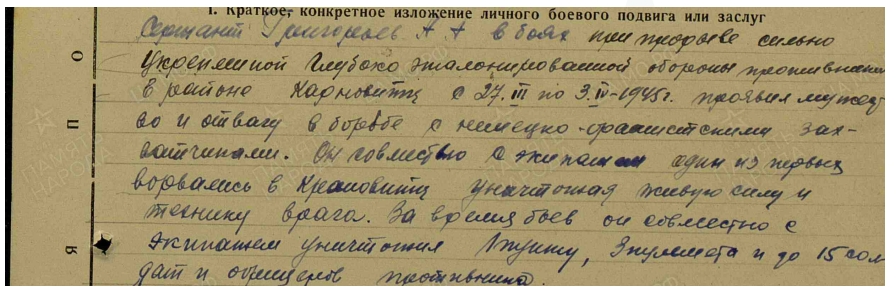 1. Краткое, конкретное изложение личного боевого подвига или заслуг
Сержант Григорьев А А в боях при прорыве сильно
укрепленной глубоко эшалонированной обороны противника
В районе с 27.III по 3.IV-1945г. проявил мужес
во и отвагу в борьбе с немецко-фашистскими зах-
ватчиками. Он совместно с экипажем один из первых
ворвались в уничтожая живую силу и
технику врага. За время боев он совместно с
экипажем уничтожил 1 пушку, 3 пулемета и до 15 сол
дат и офицеров противника.
О
П
О
Я
ПАМЯТЬ
НАРОДА